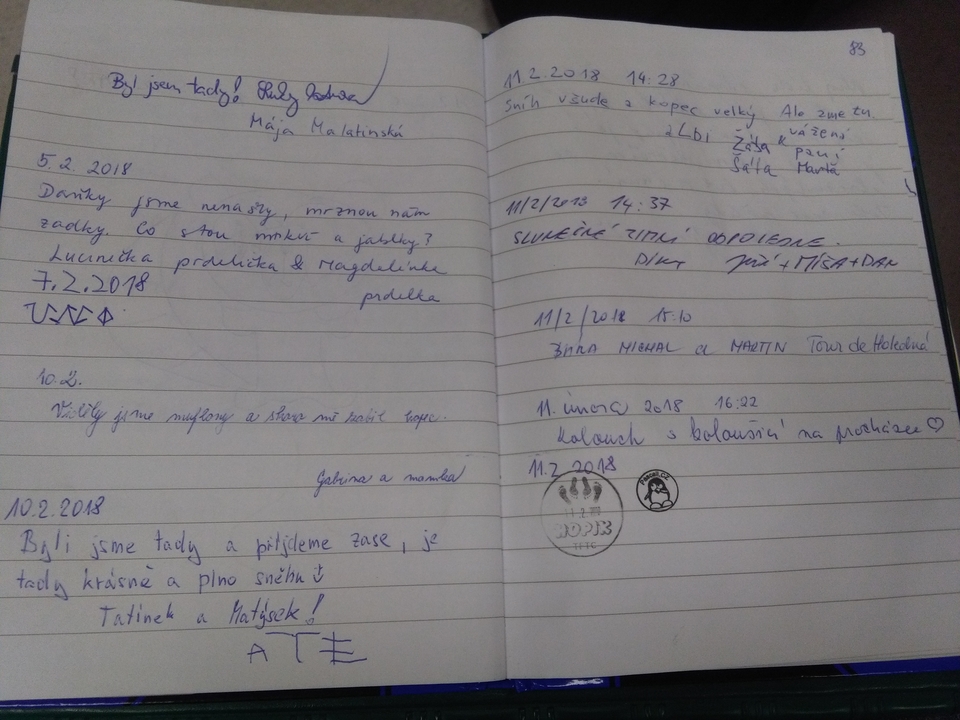 Byl jsem tady!
Mája Malatinská
5. 2. 2018
Dárky jsme nenašly, mrznou nám
zadky. Co stou mrkví a jablky?
Lucinečka prdelička & Magdelinka
prdelka
7.2.2018
10.2.
Viděly jsme muflony a skoro mě zabil kopec.
Gabrina a mamka
10.2.2018
Byli jsme tady a přijdeme zase, je
tady krásně a plno sněhu
Tatínek a Matýsek!
ATE
83
11.2.2018 14:28
Sníh všude a kopec velký. Ale zme tu
zLbi
Žába k vážená
paní
Šáťa Marťa
11/2/2018 14:37
SLUNEČNÉ ZIMNÍ ODPOLEDNE.
DÍKY JIŘÍ+MÍŠA+DAN
11/2/2018 15:10
MICHAL a MARTIN Tour de Holedná
11. února 2018 16:22
Kolouch s koloušicí na procházce ♡
11.2.2018
HOPIK